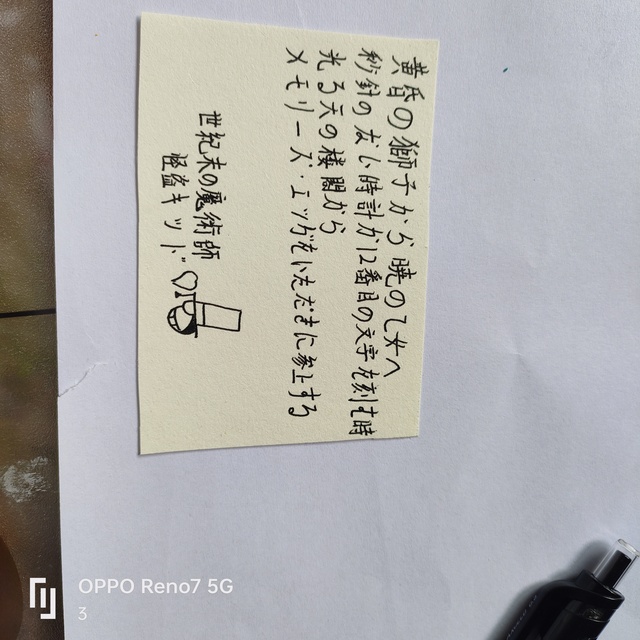 黄昏の獅子から暁の乙女へ
秒針のない時計が12番目の文字を刻む時
光る天の楼閣から
メモリーズ・エッグをいただきに参上する
世紀末の魔術師
怪盗キッド
OPPO Reno7 5G
3